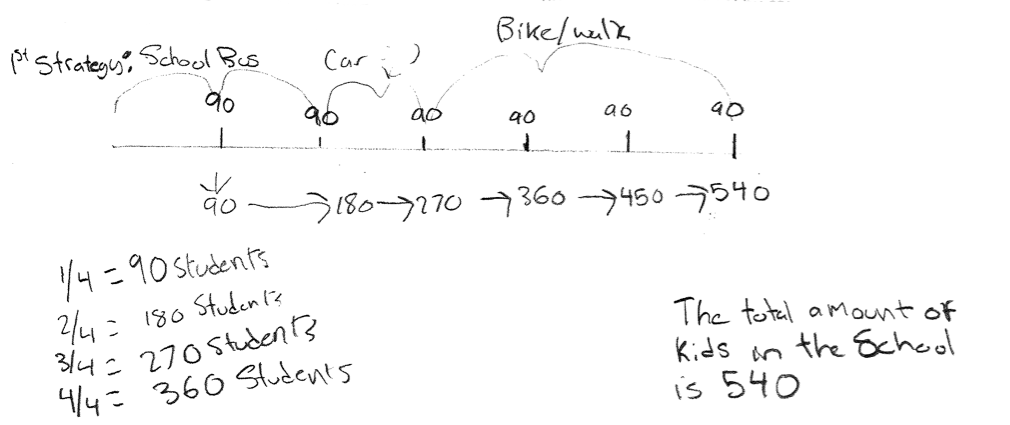 Bike/walk
1st Strategy: School Bus Car
90 90 90 90 90 90
90 → 180 → 270 → 360 → 450 → 540
1/4 = 90 Students
2/4 = 180 Students
3/4 = 270 Students
4/4 = 360 Students
The total amount of
Kids in the School
is 540